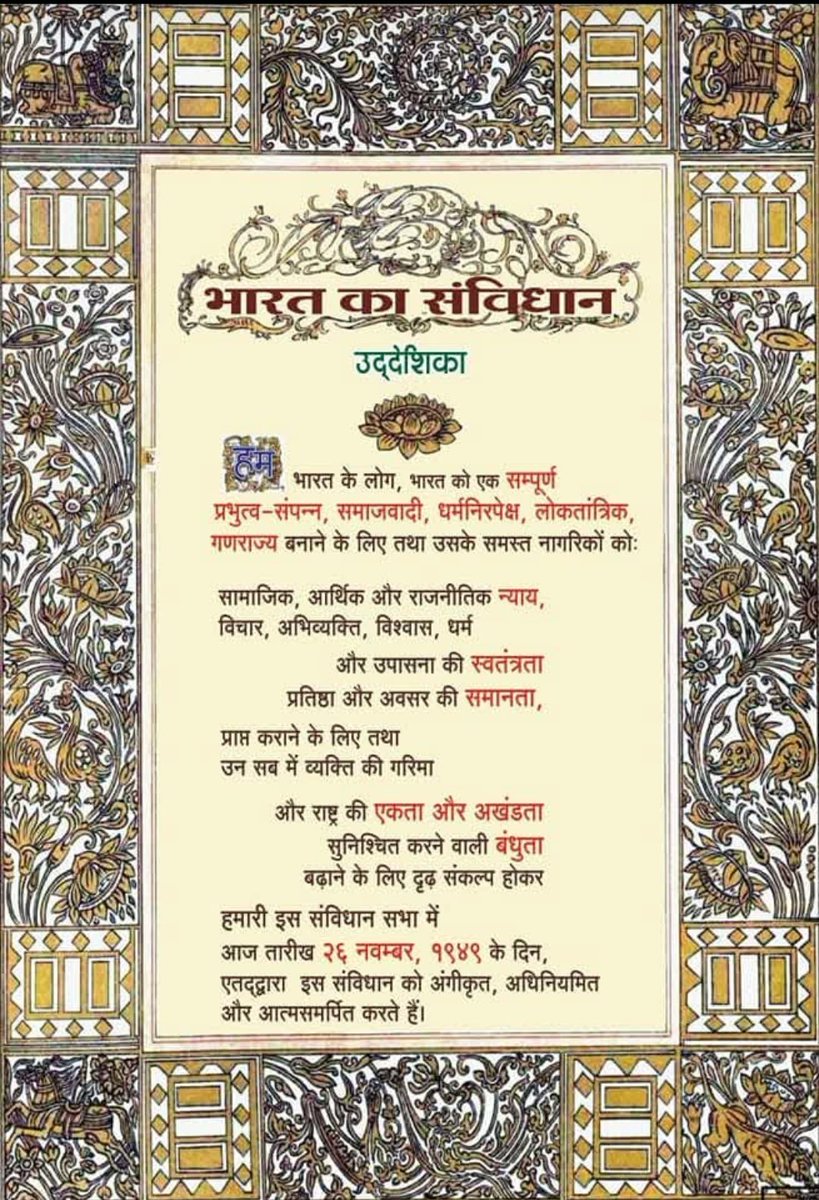 भारत का संविधान
उद्देशिका
हम भारत के लोग, भारत को एक सम्पूर्ण
प्रभुत्व-संपन्न, समाजवादी, धर्मनिरपेक्ष, लोकतांत्रिक,
गणराज्य बनाने के लिए तथा उसके समस्त नागरिकों को:
सामाजिक, आर्थिक और राजनीतिक न्याय,
विचार, अभिव्यक्ति, विश्वास, धर्म
और उपासना की स्वतंत्रता
प्रतिष्ठा और अवसर की समानता,
प्राप्त कराने के लिए तथा
उन सब में व्यक्ति की गरिमा
और राष्ट्र की एकता और अखंडता
सुनिश्चित करने वाली बंधुता
बढ़ाने के लिए दृढ़ संकल्प होकर
हमारी इस संविधान सभा में
आज तारीख २६ नवम्बर, १९४९ के दिन,
एतद्द्वारा इस संविधान को अंगीकृत, अधिनियमित
और आत्मसमर्पित करते हैं।